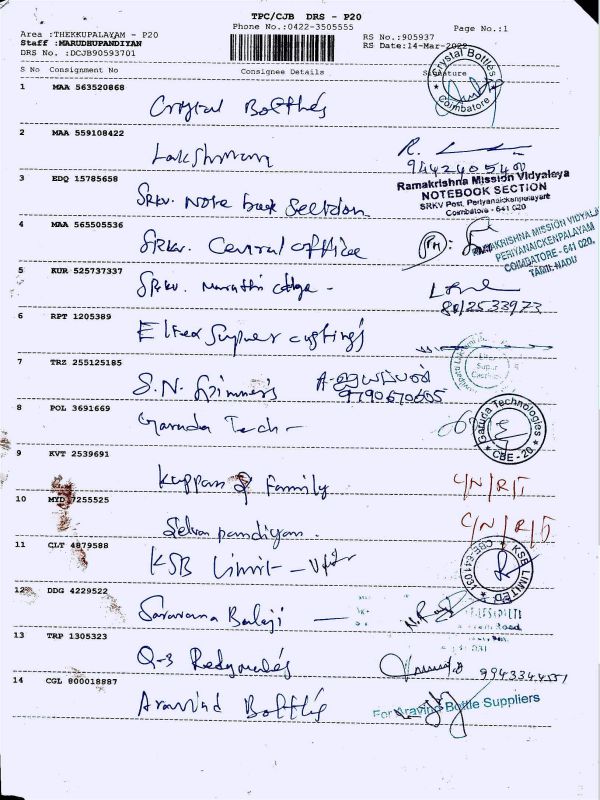 TPC/CJB DRS - P20
Phone No.:0422-3505555
Page No.:1
Area :THEKKUPALAYAM - P20
Staff :MARUDHUPANDIYAN
DRS No. :DCJB90593701
RS No.:905937
RS Date:14-Mar-2022
S No Consignment No Consignee Details Signature
1 MAA 563520868 Crystal Bottles
Crystal Bottles
Coimbatore
2 MAA 559108422 Lakshmanan R.
9442405400
3 EDQ 15785658 SRKV. Note book Section
Ramakrishna Mission Vidyalaya
NOTEBOOK SECTION
SRKV Post, Periyanaickenpalayam
Coimbatore - 641 020
4 MAA 565505536 SRKV. Central office
RAMAKRISHNA MISSION VIDYALAYA
PERIYANAICKENPALAYAM
COIMBATORE - 641 020.
TAMIL NADU
5 KUR 525737337 SRKV. Maruthi college -
6 RPT 1205389 Elfex Super castings
7 TRZ 255125185 S.N. Spinners
9790670605
8 POL 3691669 Garuda Tech -
Garuda Technologies
CBE - 20
9 KVT 2539691 Kuppan & Family C/N/R/T
10 MYD 7255525 Selva pandiyan. C/N/R/T
11 CLT 4879588 KSB Limit -
KSB LIMITED
12 DDG 4229522 Saravana Balaji
13 TRP 1305323 Q-3 Redymades 9943344551
14 CGL 800018887 Aravind Bottles
For Aravind Bottle Suppliers